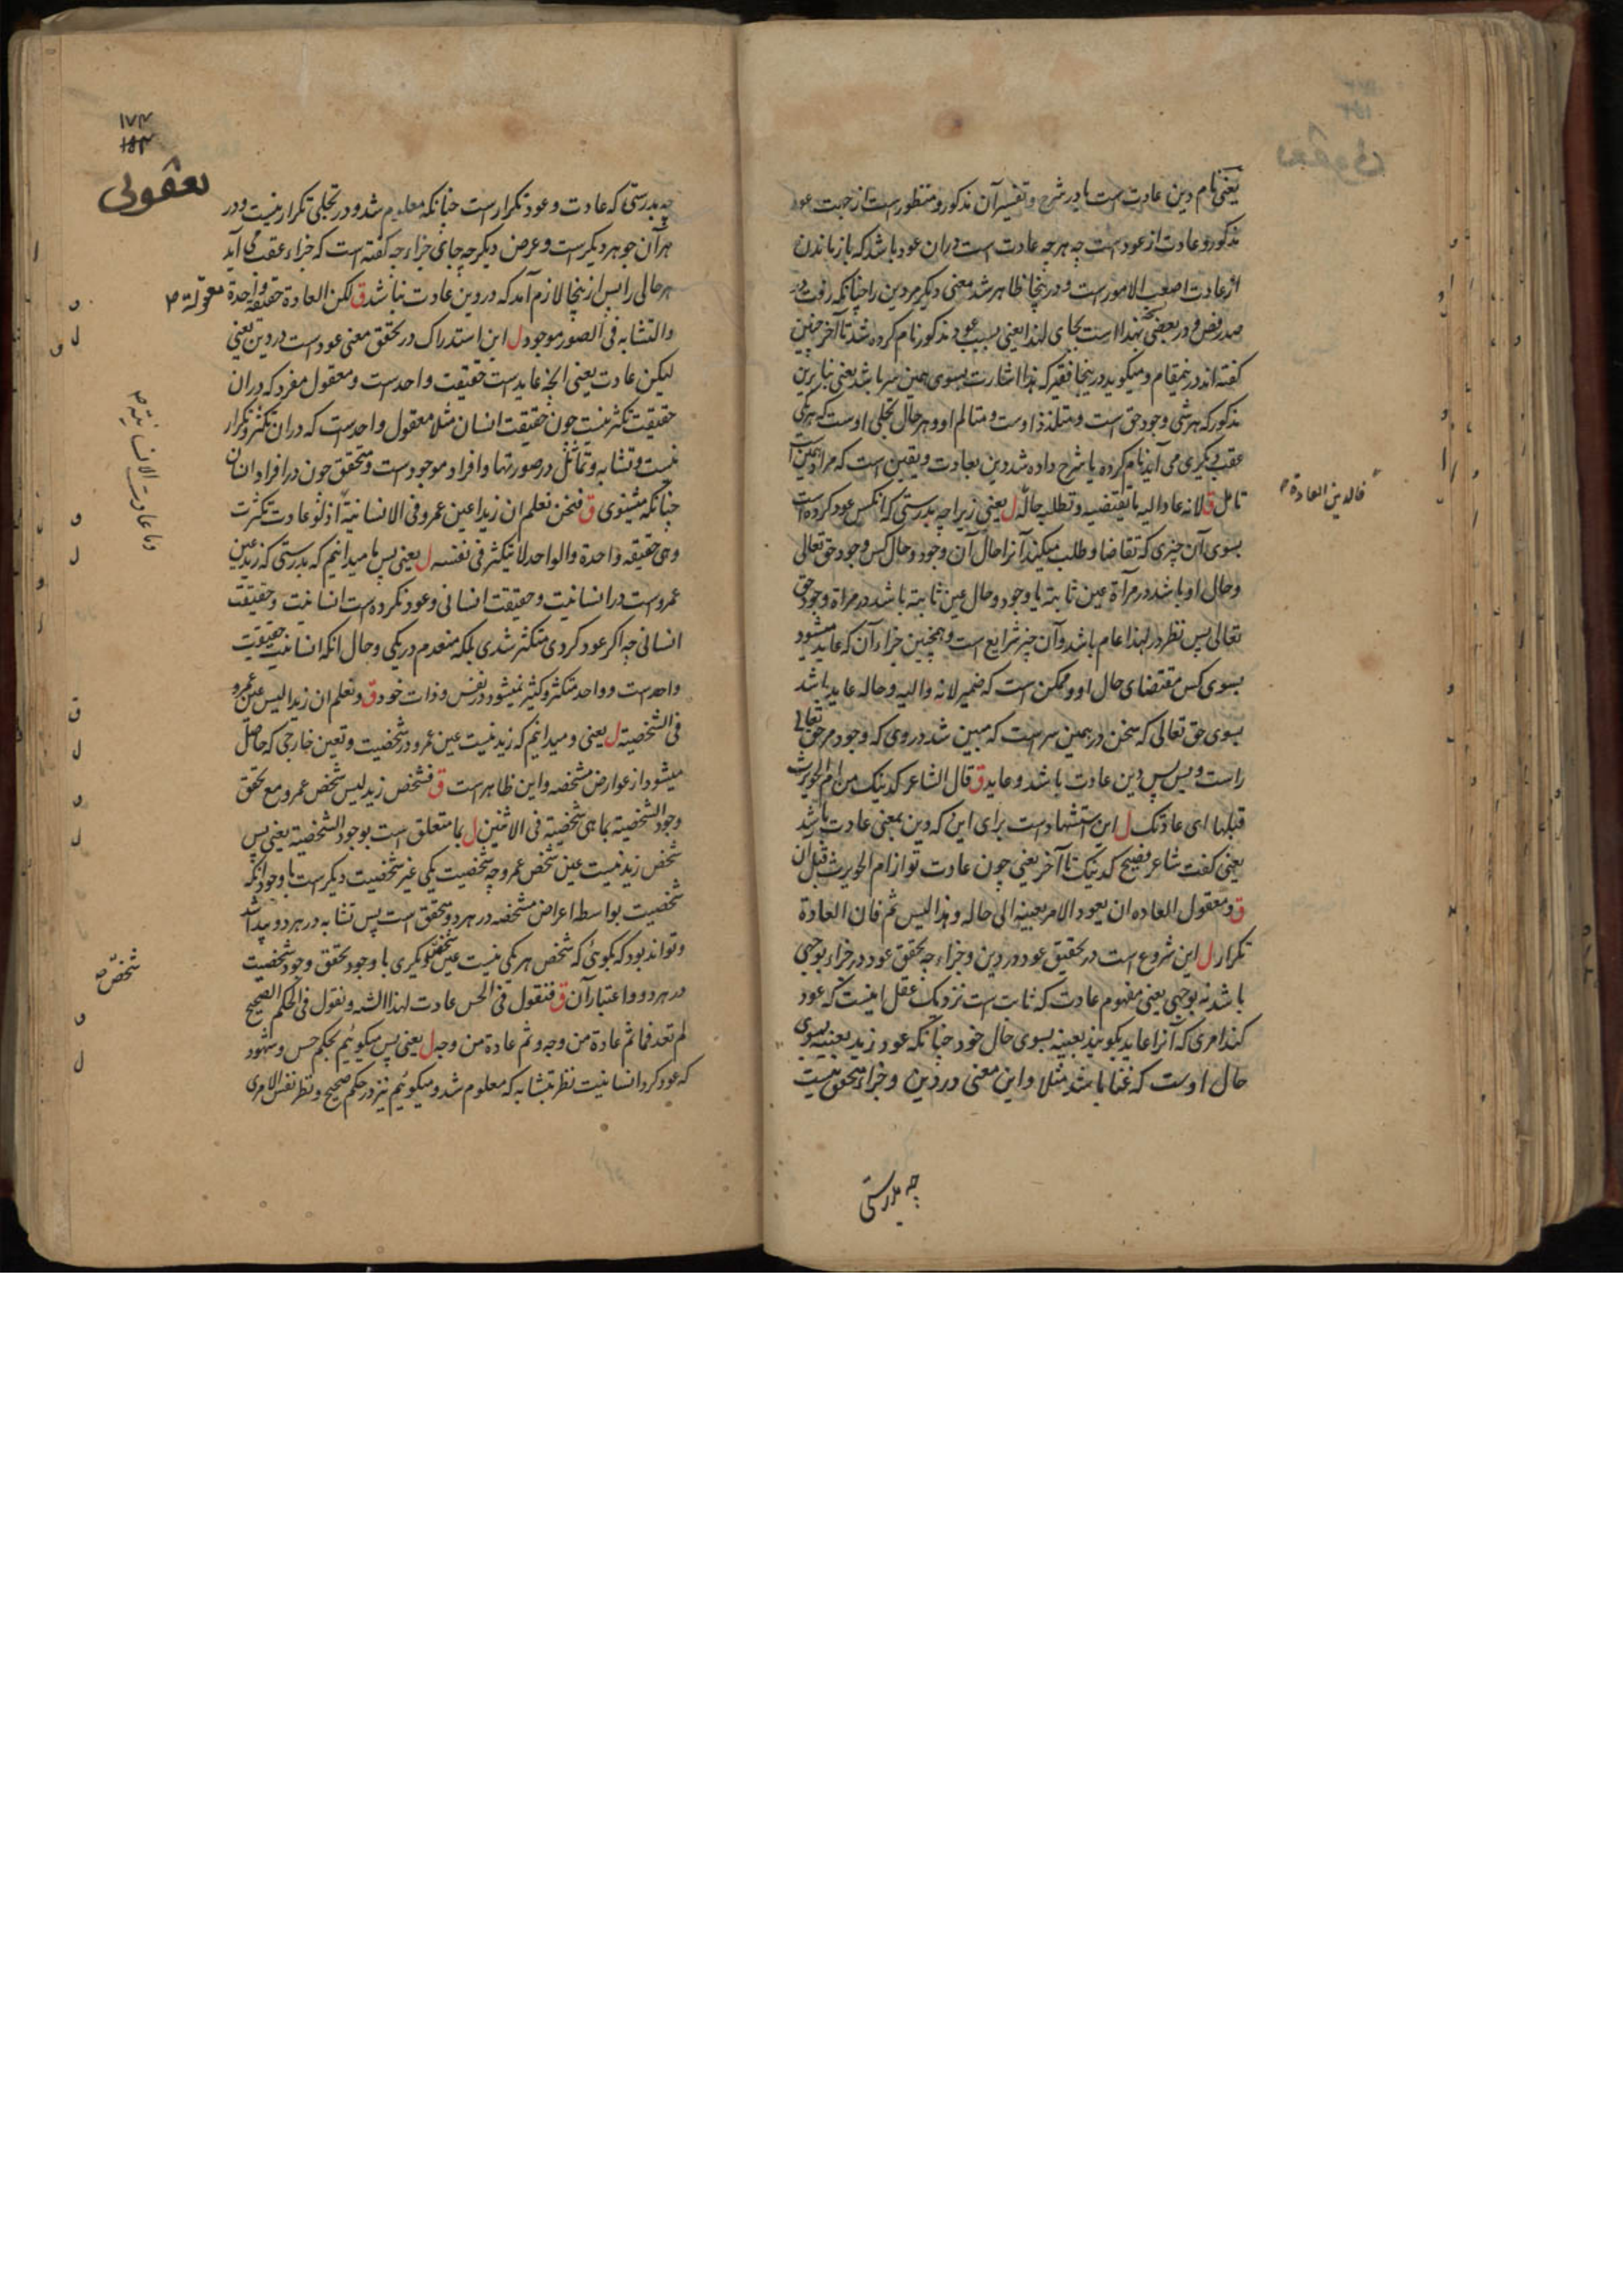 یعنی نام دین عادت است یا در شرح و تفسیر آن مذکور و منظور است از جهت عود
مذکور و عادت از عود است چه هر چه عادت است دران عود باشد که باز ماندن
از عادت اصعب الامور است و درینجا ظاهر شد معنی دیگر مر دین را چنانکه رفت در
صدر فص و در بعضی بهذا است بجای لهذا یعنی بسبب عود مذکور نام کرده شد تا آخر چنین
گفته اند درینمقام و میکوید درینجا فقیر که هذا اشارت بسوی همین سر باشد یعنی بنا برین
مذکور که هر شی وجود حق است و متلذذ اوست و متالم او و هر حال تجلی اوست که یکی
عقب دیکری می آید نام کرده یا شرح داده شد دین بعادت و یقین است که مراد همین است
تامل ق لانه عاد الیه ما یقتضیه و تطلبه حاله ل یعنی زیرا چه بدرستی که انکس عود کرده است
فالدین العادة
بسوی آن چیزی که تقاضا و طلب میکند آنرا حال آن وجود و حال کس وجود حق تعالی
و حال او باشد در مرآة عین ثابته یا وجود و حال عین ثابته باشد در مراة وجود حق
تعالی پس نظر در لهذا عام باشد و آن چیز شرایع است و همچنین جزاء آن که عاید میشود
بسوی کس مقتضای حال او و ممکن است که ضمیر لانه و الیه و حاله عاید باشد
بسوی حق تعالی که سخن در همین سر است که مبین شد در وی که وجود مر حق تعالی
راست و بس پس دین عادت باشد و عاید ق قال الشاعر کدینک من ام الحویرث
قبلها ای عادتک ل این استشهاد است برای این که دین بمعنی عادت باشد
یعنی کفت شاعر فصیح کدینک تا آخر یعنی چون عادت تو از ام الحویرث قبل ان
ق و معقول العاده ان یعود الامر بعینه الی حاله و هذا لیس ثم فان العادة
تکرار ل این شروع است در تحقیق عود در دین و جزاء چه تحقق عود در جزاء بوجهی
باشد نه بوجهی یعنی مفهوم عادت که ثابت است نزدیک عقل اینست که عود
کند امری که آنرا عاید بکویند بعینه بسوی حال خود چنانکه عود زید بعینه بسوی
حال اوست که غنا باشد مثلا و این معنی در دین و جزاء متحقق نیست
چه بدرستی
۱۷۴
۱۵۴
یعقوبی
چه بدرستی که عادت و عود تکرار است چنانکه معلوم شد و در تجلی تکرار نیست و در
هر آن جوهر دیکر است و عرض دیکر چه جای جزاء چه کفته است که جزاء عقب می آید
هر حالی را پس ازینجا لازم آمد که در دین عادت نباشد ق لکن العادة حقیقة واحدة معقولة
والتشابه فی الصور موجود ل این استدراک در تحقق معنی عود است در دین یعنی
لیکن عادت یعنی انچه عاید است حقیقت واحد است و معقول مفرد که دران
حقیقت تکثر نیست چون حقیقت انسان مثلا معقول واحد است که دران تکثر و تکرار
نیست و تشابه و تماثل در صورتها و افراد موجود است و متحقق چون در افراد انسان
چنانکه میشنوی ق فنحن نعلم ان زیدا عین عمرو فی الانسانیة اذ لو عادت تکثرت
وما عادت الانسانیة
وهی حقیقة واحدة والواحد لا یتکثر فی نفسه ل یعنی پس ما میدانیم که بدرستی که زید عین
عمرو است در انسانیت و حقیقت انسانی و عود نکرده است انسانیت و حقیقت
انسانی چه اکر عود کردی متکثر شدی بلکه منعدم در یکی و حال آنکه انسانیت حقیقت
واحد است و واحد متکثر و کثیر نمیشود در نفس و ذات خود ق و نعلم ان زیدا لیس عین عمرو
فی الشخصیة ل یعنی و میدانیم که زید نیست عین عمرو در شخصیت و تعین خارجی که حاصل
میشود از عوارض مشخصه و این ظاهر است ق فشخص زید لیس شخص عمرو مع تحقق
وجود الشخصیة بما هی شخصیة فی الاثنین ل بما متعلق است بوجود الشخصیة یعنی پس
شخص زید نیست عین شخص عمرو چه شخصیت یکی غیر شخصیت دیکر است با وجود آنکه
شخصیت بواسطه اعراض مشخصه در هر دو متحقق است پس تشابه در هر دو پیدا شد
و تواند بود که بکوئی که شخص هر یکی نیست عین شخص دیکری با وجود تحقق وجود شخصیت
شخص
در هر دو و اعتبار آن ق فنقول فی الحس عادت لهذا الشبه و نقول فی الحکم الصحیح
لم تعد فما ثم عادة من وجه و ثم عادة من وجه ل یعنی پس میکوئیم بحکم حس و شهود
که عود کرد انسانیت نظر بتشابه که معلوم شد و میکوئیم نیز در حکم صحیح و نظر نفس الامری